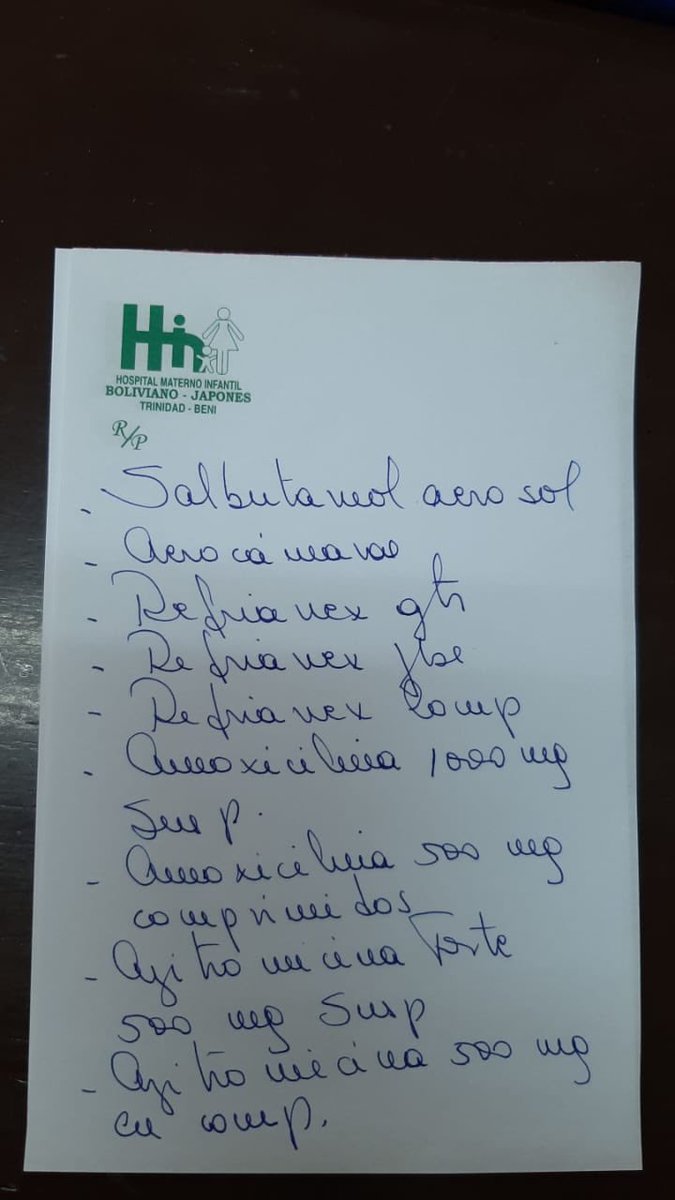 HOSPITAL MATERNO INFANTIL
BOLIVIANO - JAPONES
TRINIDAD - BENI
R/P
- Salbutamol aerosol
- Aerocámaras
- Refrianex gts
- Refrianex jbe
- Refrianex Comp
- Amoxicilina 1000 mg
Susp.
- Amoxicilina 500 mg
comprimidos
- Azitromicina Forte
500 mg Susp
- Azitromicina 500 mg
en comp.